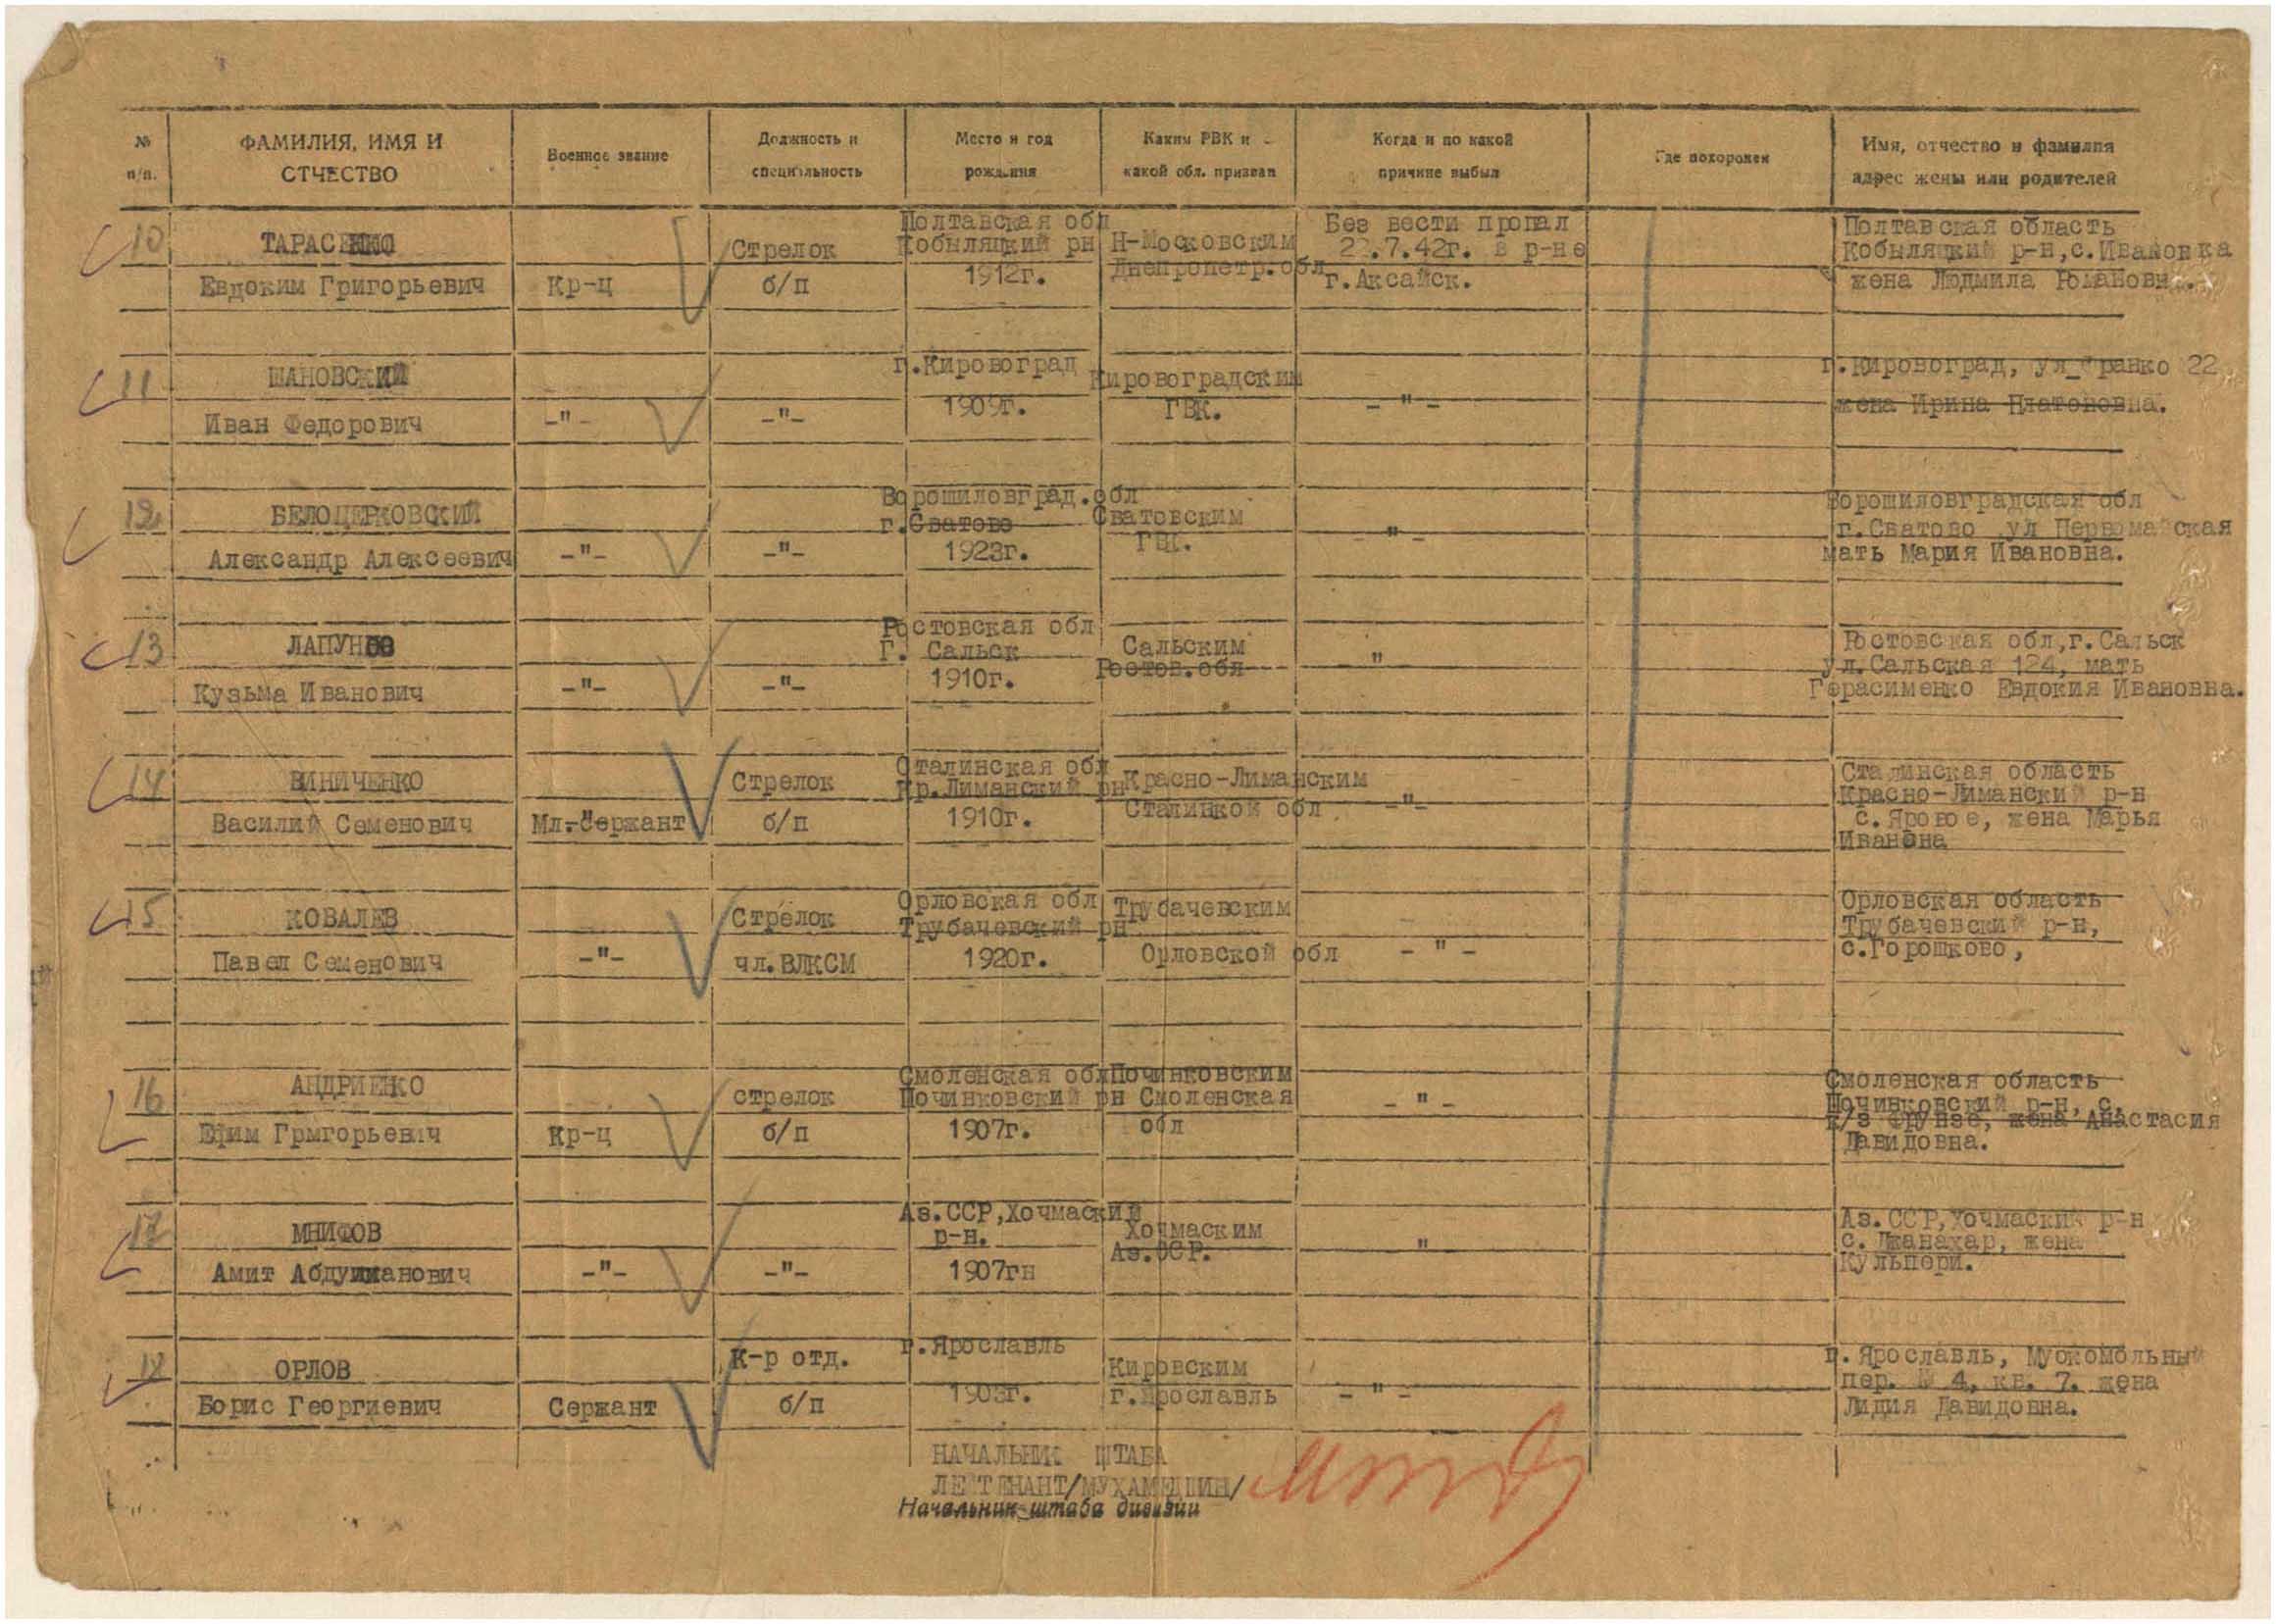 № п/п.
ФАМИЛИЯ, ИМЯ И ОТЧЕСТВО
Военное звание
Должность и специальность
Место и год рождения
Каким РВК и какой обл. призван
Когда и по какой причине выбыл
Где похоронен
Имя, отчество и фамилия адрес жены или родителей
10
ТАРАСЕНКО
Евдоким Григорьевич
Кр-ц
Стрелок
б/п
Полтавская обл
Кобыляцкий рн
1912г.
Н-Московским
Днепропетр.обл
Без вести пропал
22.7.42г. в р-не
г.Аксайск.
Полтавская область
Кобыляцкий р-н,с.Ивановка
жена Людмила Романовн
11
ШАНОВСКИЙ
Иван Федорович
-"-
-"-
г.Кировоград
1909г.
Кировоградским
ГВК.
-"-
г.Кировоград, ул Франко 22
жена Ирина Платоновна.
12
БЕЛОЦЕРКОВСКИЙ
Александр Алексеевич
-"-
-"-
Ворошиловград.обл
г.Сватово
1923г.
Сватовским
ГВК.
-"-
Ворошиловградская обл
г.Сватово ул Первомайская
мать Мария Ивановна.
13
ЛАПУН
Кузьма Иванович
-"-
-"-
Ростовская обл
Г. Сальск
1910г.
Сальским
Ростов.обл
"
Ростовская обл,г.Сальск
ул.Сальская 124, мать
Герасименко Евдокия Ивановна.
14
ВИНИЧЕНКО
Василий Семенович
Мл.-Сержант
Стрелок
б/п
Сталинская обл
Кр.Лиманский рн
1910г.
Красно-Лиманским
Сталинкой обл
-"-
Сталинская область
Красно-Лиманский р-н
с.Яровое, жена Марья
Иванона
15
КОВАЛЕВ
Павел Семенович
-"-
Стрелок
чл.ВЛКСМ
Орловская обл
Трубачевский рн
1920г.
Трубачевским
Орловской обл
-"-
Орловская область
Трубачевский р-н,
с.Горошково,
16
АНДРИЕНКО
Ефим Грмгорьевич
Кр-ц
стрелок
б/п
Смоленская обл
Починковский рн
1907г.
Починковским
Смоленская
обл
-"-
Смоленская область
Починковский р-н, с.
к/з Фрунзе, жена Анастасия
Давидовна.
17
МНИФОВ
Амит
-"-
-"-
Аз.ССР,Хочмаский
р-н.
1907гн
Хочмаским
Аз.ССР.
"
Аз.ССР,Хочмаский р-н
с. Джанахар, жена
Кульпери.
18
ОРЛОВ
Борис Георгиевич
Сержант
К-р отд.
б/п
г.Ярославль
Кировским
г.Ярославль
-"-
г. Ярославль, Мукомольный
пер. № 4, кв. 7. жена
Лидия Давидовна.
НАЧАЛЬНИК ШТАБА
ЛЕЙТЕНАНТ/МУХАМЕДШИН/
Начальник штаба дивизии